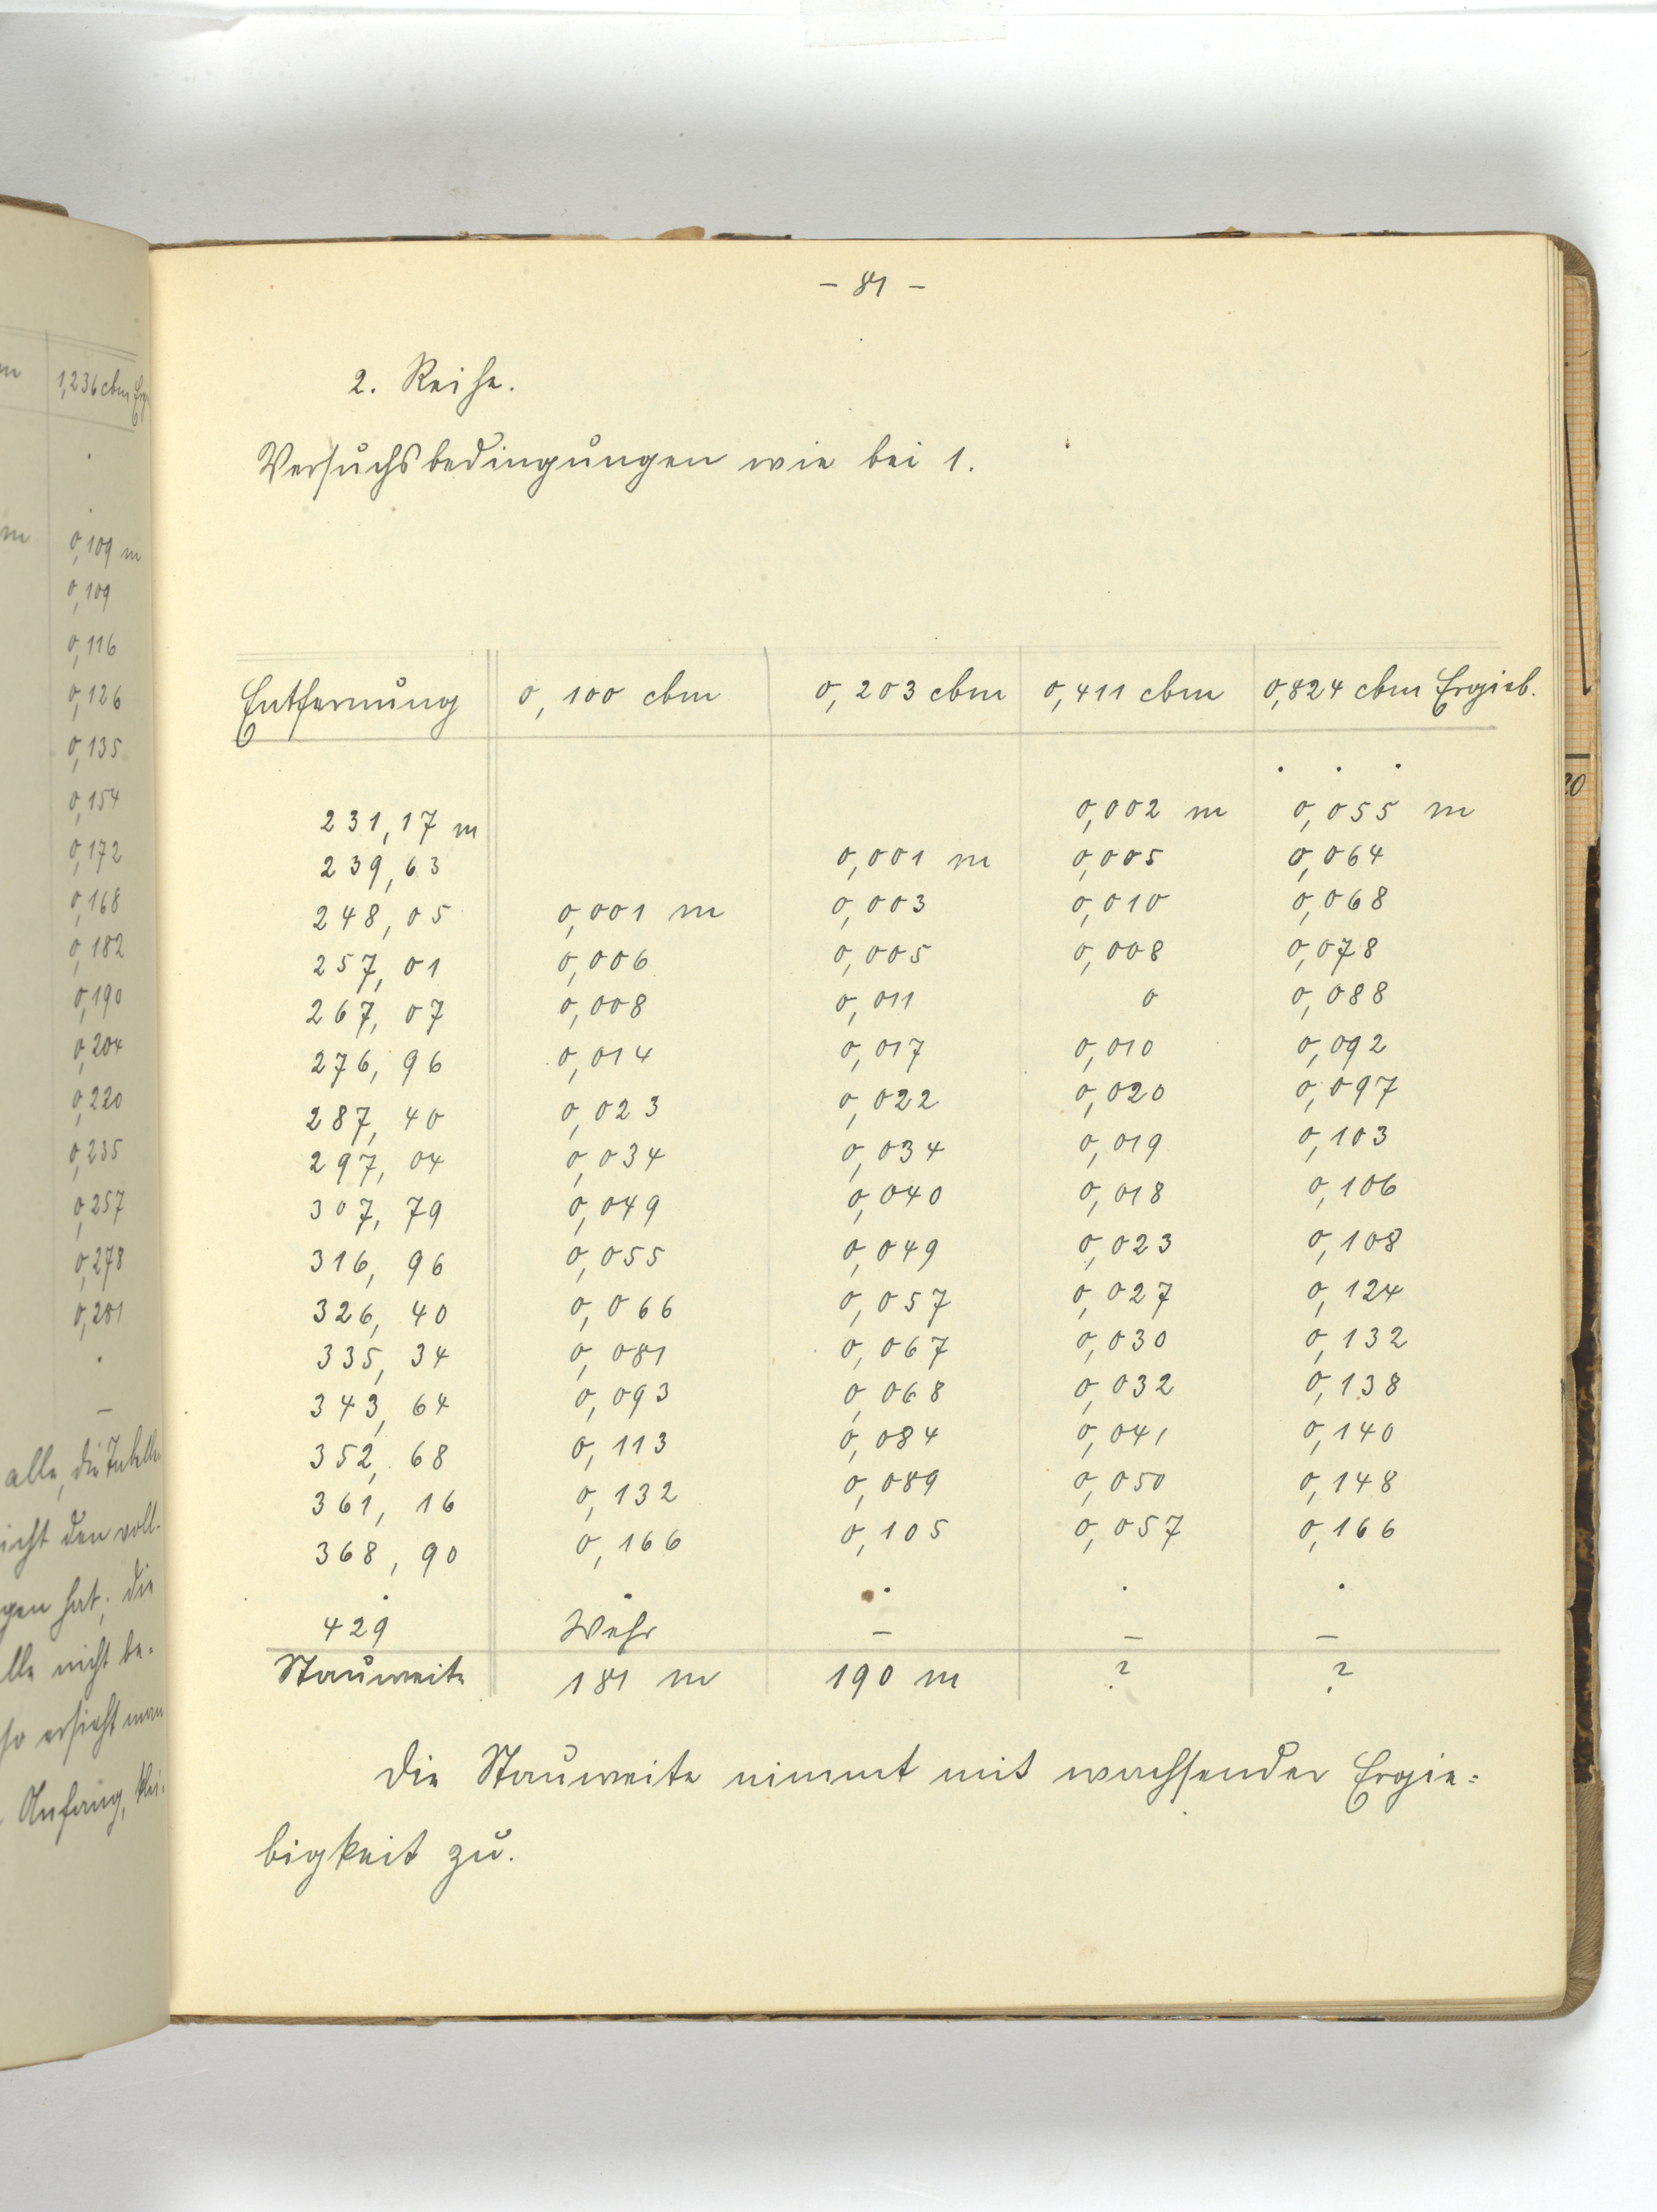 1,236 cbm
0,109 m
0,109
0,116
0,126
0,135
0,154
0,172
0,168
0,182
0,190
0,204
0,220
0,235
0,257
0,278
0,281
–
alle, die Tabelle
icht den voll-
gen hat; die
lle nicht be-
so ersieht man
Anfang,
– 81 –
2. Reihe.
Versuchsbedingungen wie bei 1.
Entfernung 0,100 cbm 0,203 cbm 0,411 cbm 0,824 cbm Ergieb.
. . .
231,17 m 0,002 m 0,055 m
239,63 0,001 m 0,005 0,064
248,05 0,001 m 0,003 0,010 0,068
257,01 0,006 0,005 0,008 0,078
267,07 0,008 0,011 0 0,088
276,96 0,014 0,017 0,010 0,092
287,40 0,023 0,022 0,020 0,097
297,04 0,034 0,034 0,019 0,103
307,79 0,049 0,040 0,018 0,106
316,96 0,055 0,049 0,023 0,108
326,40 0,066 0,057 0,027 0,124
335,34 0,081 0,067 0,030 0,132
343,64 0,093 0,068 0,032 0,138
352,68 0,113 0,084 0,041 0,140
361,16 0,132 0,089 0,050 0,148
368,90 0,166 0,105 0,057 0,166
. . . . .
429 Wehr – – –
Stauweite 181 m 190 m ? ?
Die Stauweite nimmt mit wachsender Ergie-
bigkeit zu.
20